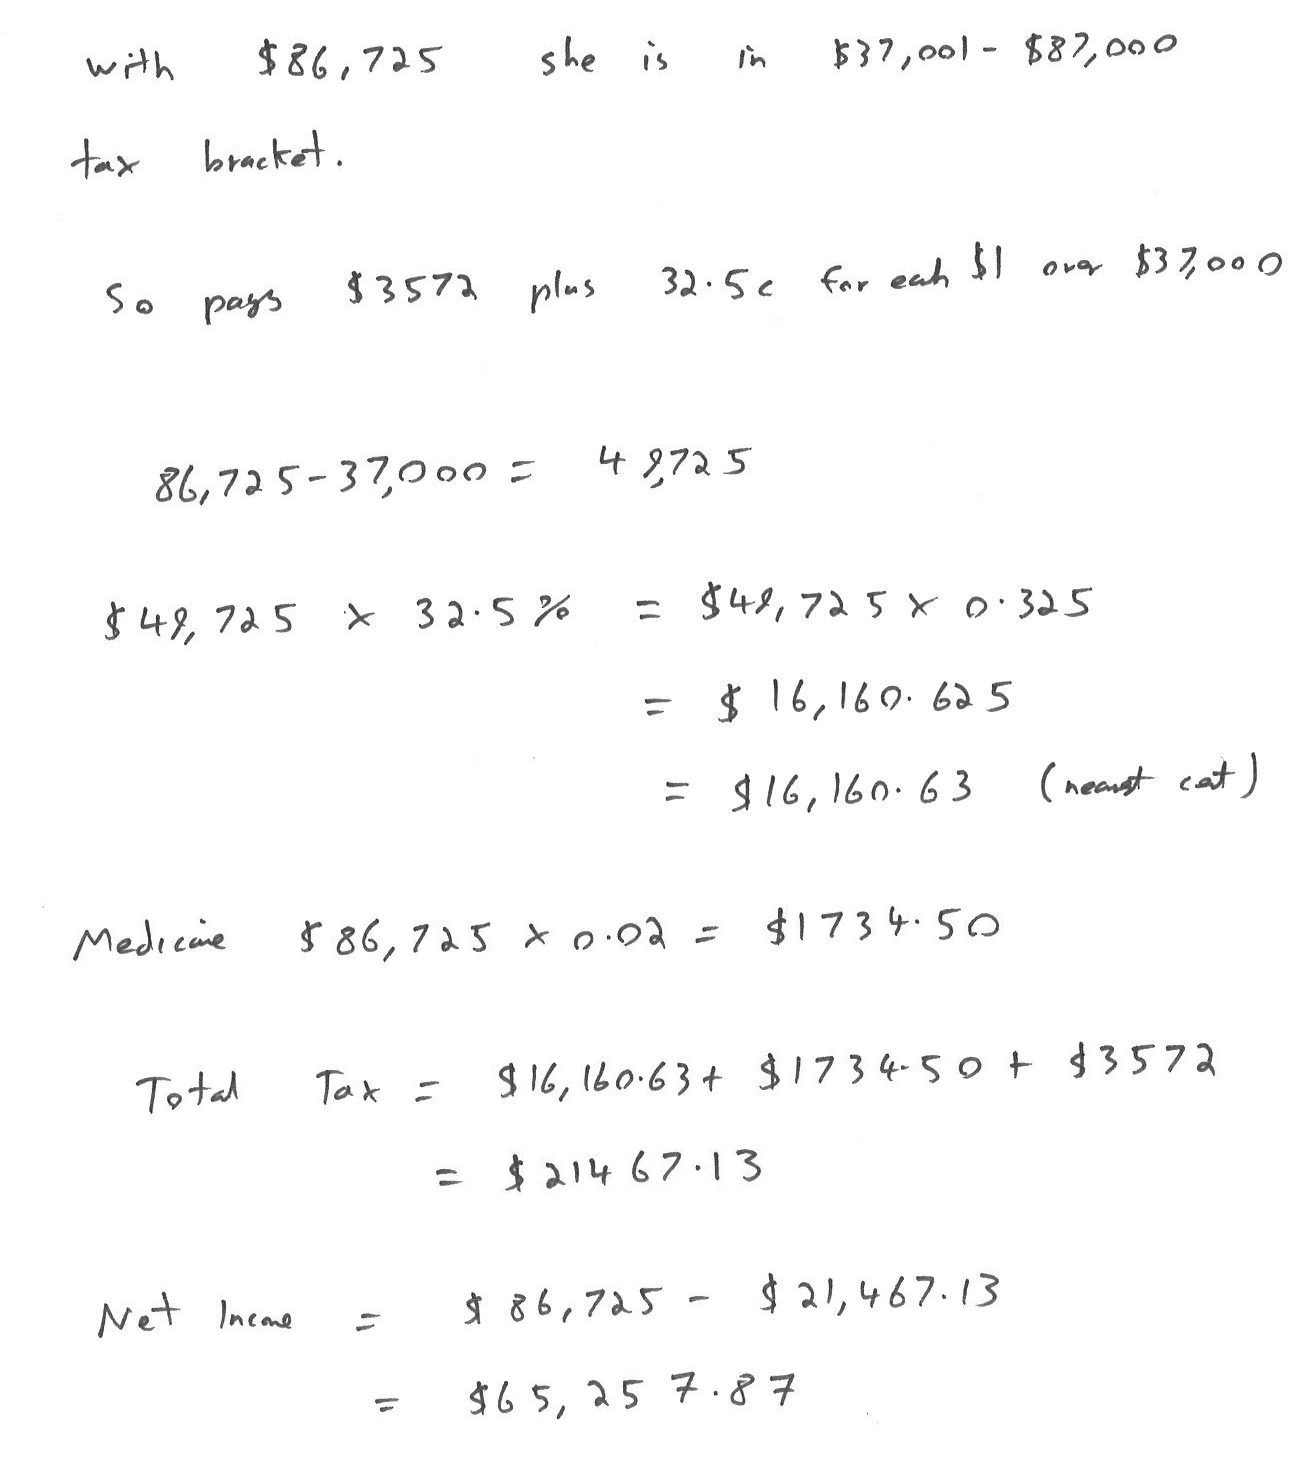 with $86,725 she is in $37,001 - $87,000
tax bracket.
So pays $3572 plus 32.5c for each $1 over $37,000
86,725 - 37,000 = 49,725
$49,725 x 32.5% = $49,725 x 0.325
= $16,160.625
= $16,160.63 (nearest cent)
Medicare $86,725 x 0.02 = $1734.50
Total Tax = $16,160.63 + $1734.50 + $3572
= $21467.13
Net Income = $86,725 - $21,467.13
= $65,257.87